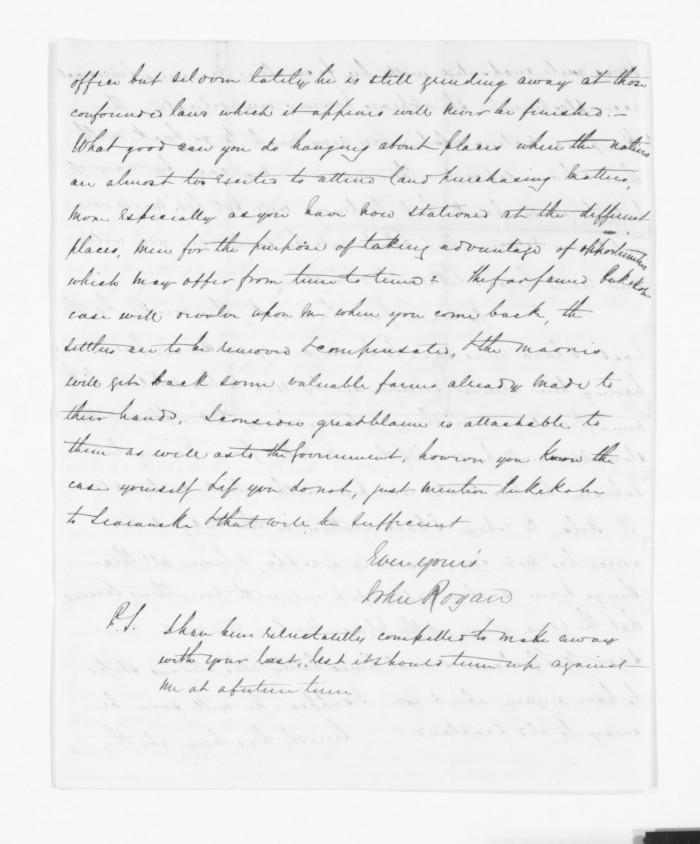 office but seldom lately he is still grinding away at those
confounded laws which it appears will never be finished. -
What good can you do hanging about places when the natives
are almost too excited to attend land purchasing matters,
more especially as you have now stationed at the different
places, men for the purpose of taking advantage of opportunities
which may offer from time to time. The far famed Pukekohe
case will revolve upon me when you come back, the
settlers are to be removed & compensated, & the maoris
will get back some valuable farms already made to
their hands, I consider great blame is attachable to
them as well as to the Government, however you know the
case yourself & if you do not, just mention Pukekohe
to Searancke & that will be sufficient
Ever yours
John Rogan
P.S. I have been reluctantly compelled to make away
with your last, lest it should turn up against
me at a future time